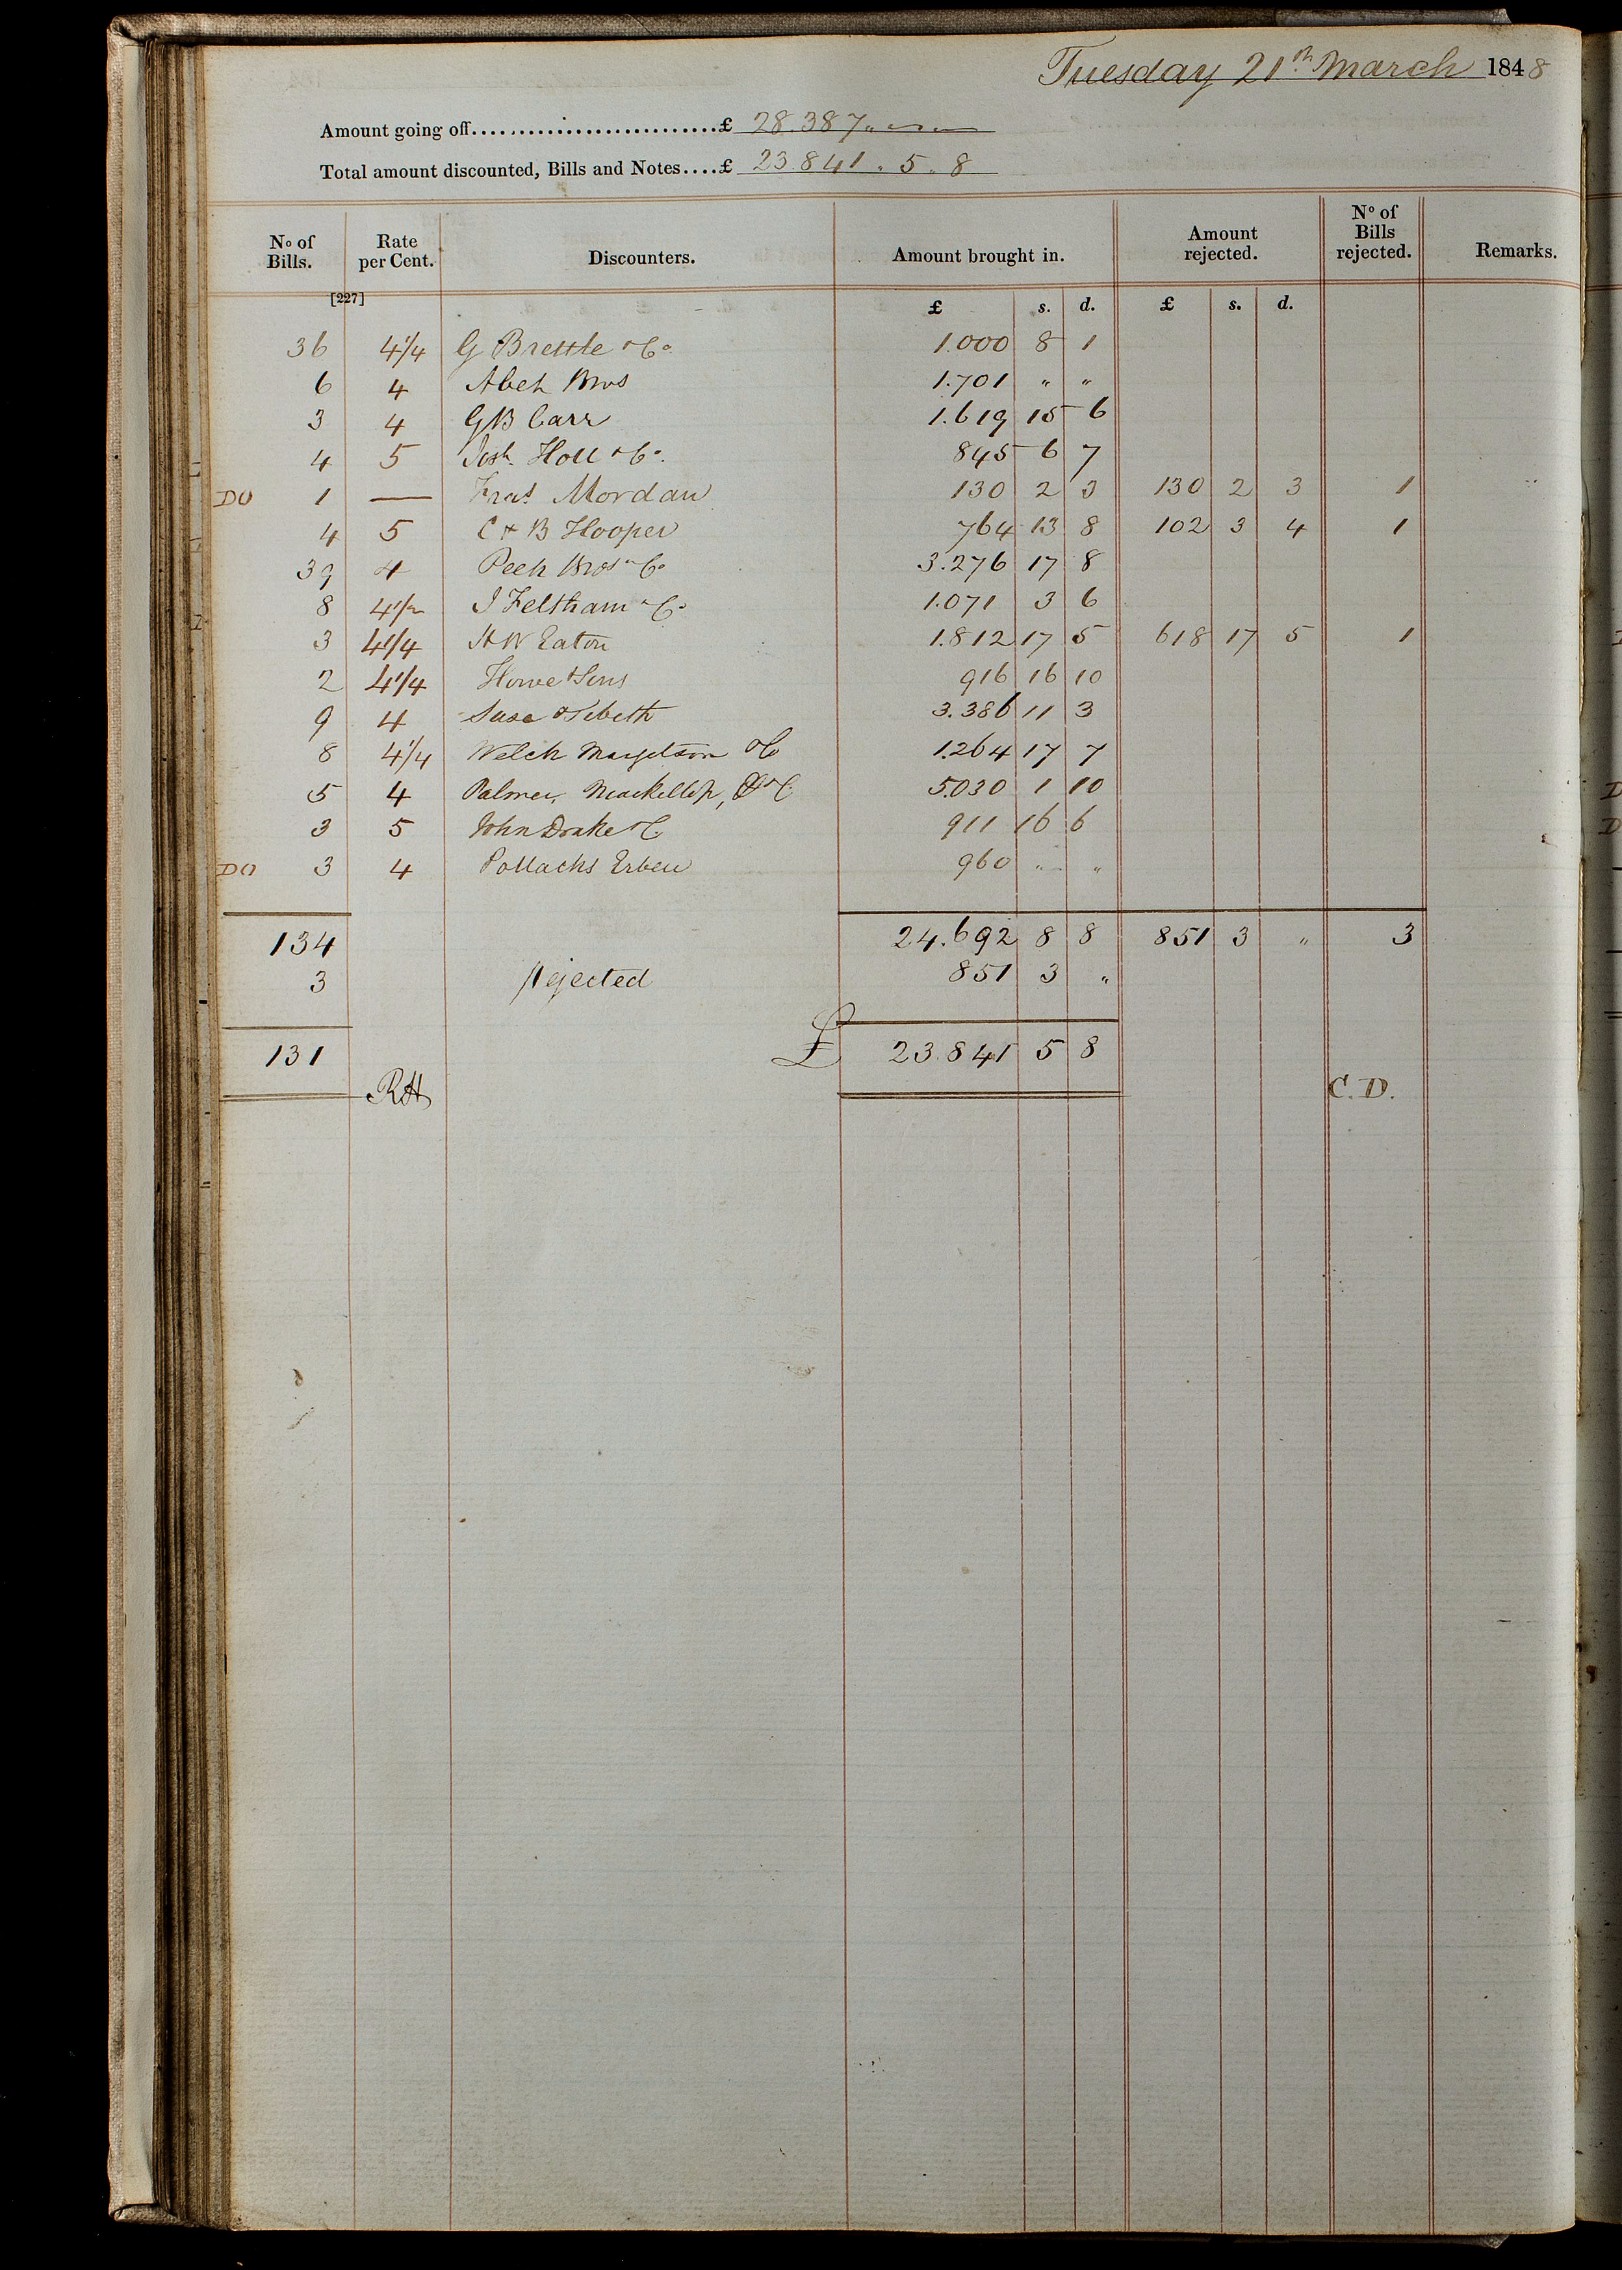 Tuesday 21th March 1848
Amount going off..........................£ 28.387 " — "
Total amount discounted, Bills and Notes....£ 23.841 . 5 . 8
No of Bills. Rate per Cent. Discounters. Amount brought in. Amount rejected. No of Bills rejected. Remarks.
[227]
£ s. d. £ s. d.
36 4 1/4 G Brettle & Co 1.000 8 1
6 4 Abeh Bros 1.701 " "
3 4 G B Carr 1.619 15 6
4 5 Josh. Holl & Co. 845 6 7
DO 1 — Fras Mordan 130 2 3 130 2 3 1
4 5 C & B Hooper 764 13 8 102 3 4 1
39 4 Peek Bros & Co 3.276 17 8
8 4 1/2 J Feltham & Co 1.071 3 6
3 4 1/4 H W Eaton 1.812 17 5 618 17 5 1
2 4 1/4 Howe & Sons 916 16 10
9 4 Suse & Sibeth 3.386 11 3
8 4 1/4 Welch Margetson & Co 1.264 17 7
5 4 Palmer, Mackillop, & C 5.030 1 10
3 5 John Drake & C 911 16 6
DO 3 4 Pollacks Erben 960 " "
134 24.692 8 8 851 3 " 3
3 Rejected 851 3 "
131 £ 23.841 5 8
RH C. D.